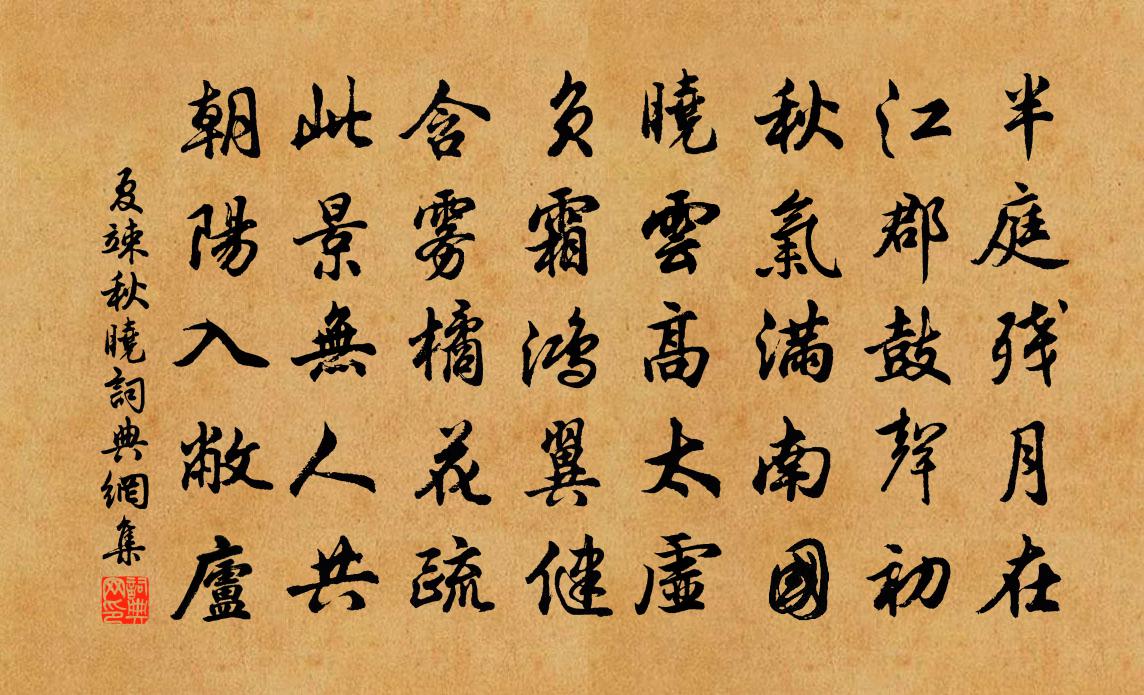 半庭残月在
江郡鼓聲初
秋氣滿南國
曉雲高太虛
負霜鴻翼健
含雾橘花疏
此景無人共
朝陽入敝廬
夏竦秋曉詞典網集
詞典网印